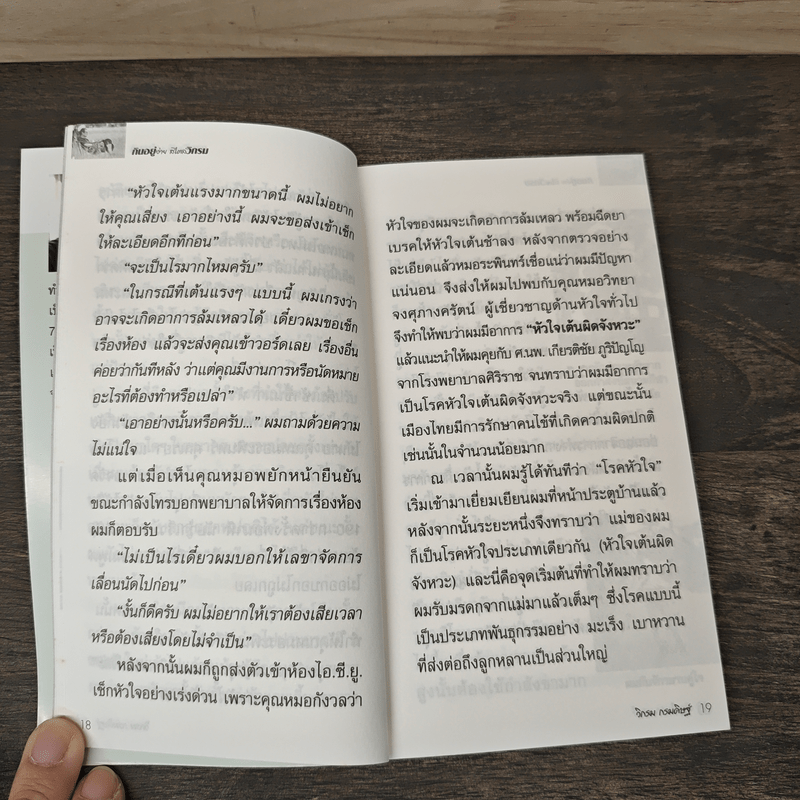 กินอยู่อย่าง วิกรม
“หัวใจเต้นแรงมากขนาดนี้ ผมไม่อยาก
ให้คุณเสี่ยง เอาอย่างนี้ ผมจะขอส่งเข้าเช็ก
ให้ละเอียดอีกทีก่อน”
“จะเป็นไรมากไหมครับ”
“ในกรณีที่เต้นแรงๆ แบบนี้ ผมเกรงว่า
อาจจะเกิดอาการล้มเหลวได้ เดี๋ยวผมขอเช็ก
เรื่องห้อง แล้วจะส่งคุณเข้าวอร์ดเลย เรื่องอื่น
ค่อยว่ากันทีหลัง ว่าแต่คุณมีงานการหรือนัดหมาย
อะไรที่ต้องทำหรือเปล่า”
“เอาอย่างนั้นหรือครับ...” ผมถามด้วยความ
ไม่แน่ใจ
แต่เมื่อเห็นคุณหมอพยักหน้ายืนยัน
ขณะกำลังโทรบอกพยาบาลให้จัดการเรื่องห้อง
ผมก็ตอบรับ
“ไม่เป็นไรเดี๋ยวผมบอกให้เลขาจัดการ
เลื่อนนัดไปก่อน”
“งั้นก็ดีครับ ผมไม่อยากให้เราต้องเสียเวลา
หรือต้องเสี่ยงโดยไม่จำเป็น”
หลังจากนั้นผมก็ถูกส่งตัวเข้าห้องไอ.ซี.ยู.
เช็กหัวใจอย่างเร่งด่วน เพราะคุณหมอกังวลว่า
18
หัวใจของผมจะเกิดอาการล้มเหลว พร้อมฉีดยา
เบรคให้หัวใจเต้นช้าลง หลังจากตรวจอย่าง
ละเอียดแล้วหมอระพินทร์เชื่อแน่ว่าผมมีปัญหา
แน่นอน จึงส่งให้ผมไปพบกับคุณหมอวิทยา
จงศุภางครัตน์ ผู้เชี่ยวชาญด้านหัวใจทั่วไป
จึงทำให้พบว่าผมมีอาการ “หัวใจเต้นผิดจังหวะ”
แล้วแนะนำให้ผมคุยกับ ศ.นพ. เกียรติชัย ภูริปัญโญ
จากโรงพยาบาลศิริราช จนทราบว่าผมมีอาการ
เป็นโรคหัวใจเต้นผิดจังหวะจริง แต่ขณะนั้น
เมืองไทยมีการรักษาคนไข้ที่เกิดความผิดปกติ
เช่นนั้นในจำนวนน้อยมาก
ณ เวลานั้นผมรู้ได้ทันทีว่า “โรคหัวใจ”
เริ่มเข้ามาเยี่ยมเยียนผมที่หน้าประตูบ้านแล้ว
หลังจากนั้นระยะหนึ่งจึงทราบว่า แม่ของผม
ก็เป็นโรคหัวใจประเภทเดียวกัน (หัวใจเต้นผิด
จังหวะ) และนี่คือจุดเริ่มต้นที่ทำให้ผมทราบว่า
ผมรับมรดกจากแม่มาแล้วเต็มๆ ซึ่งโรคแบบนี้
เป็นประเภทพันธุกรรมอย่าง มะเร็ง เบาหวาน
ที่ส่งต่อถึงลูกหลานเป็นส่วนใหญ่
วิกรม กรมดิษฐ์ 19